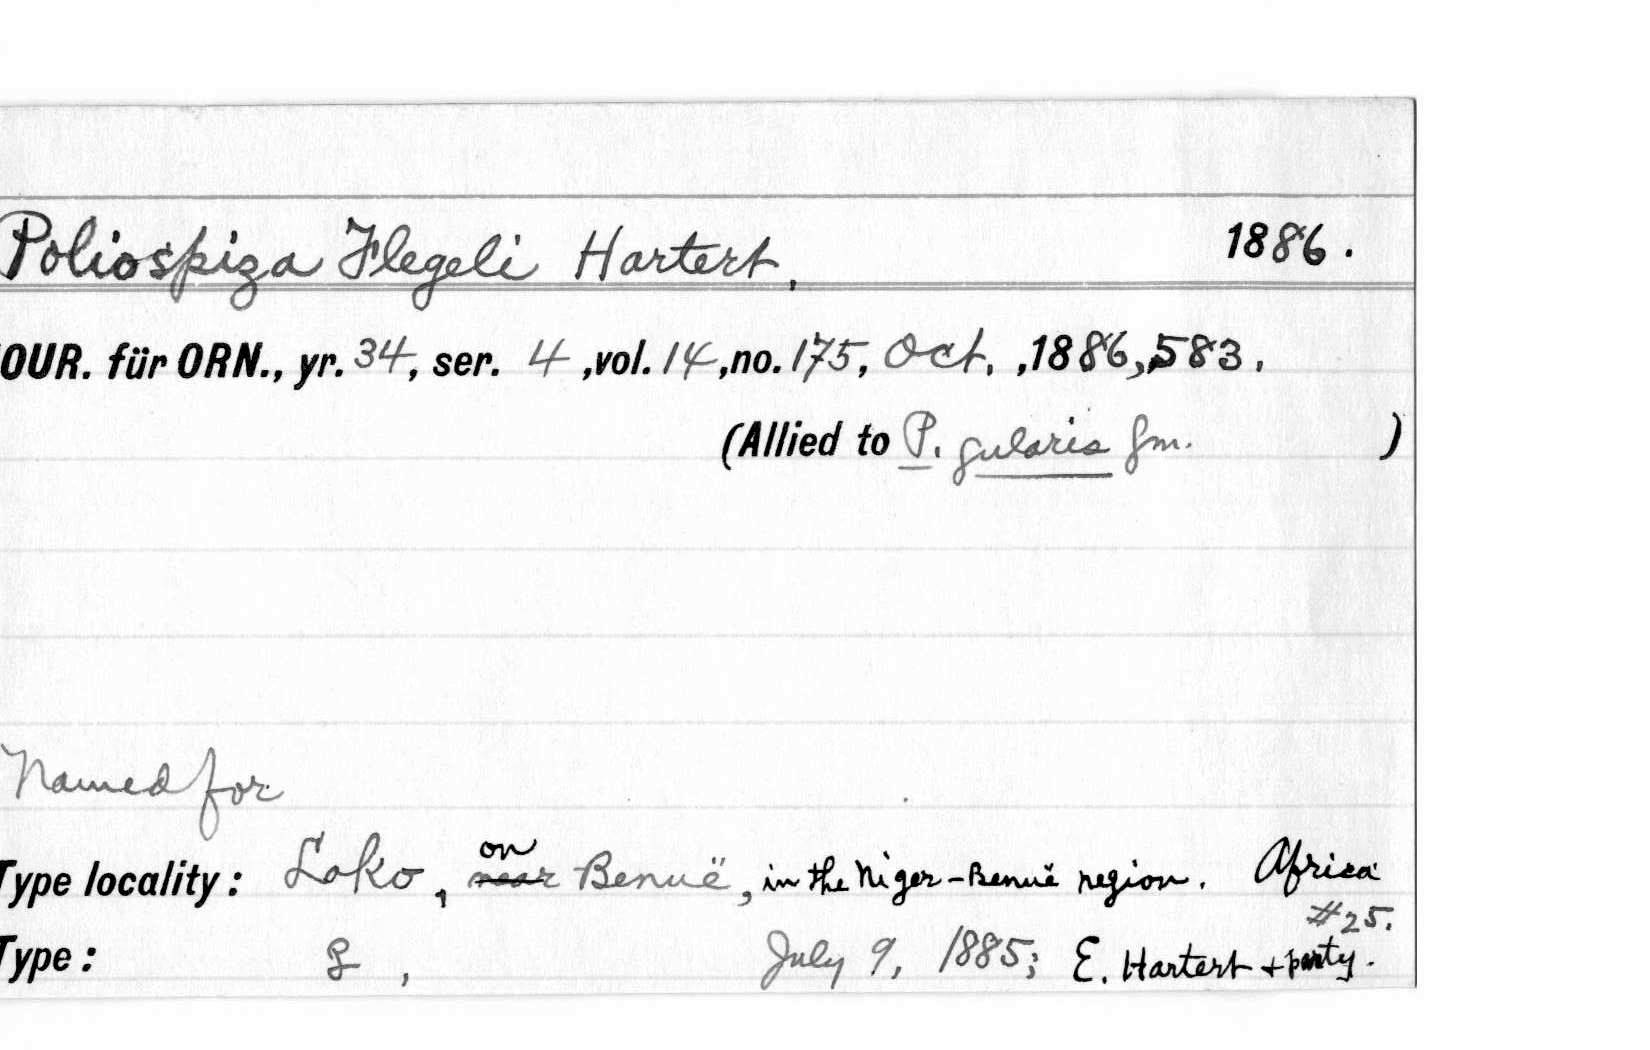 Poliospiza Flegeli Hartert, 1886.
OUR. für ORN., yr. 34, ser. 4 ,vol. 14 ,no. 175, Oct. ,1886,,583.
(Allied to P. gularis Gm. )
Named for
Type locality: Loko, on near Benuë, in the Niger-Benuë region. Africa
#25.
Type: , July 9, 1885; E. Hartert + party.